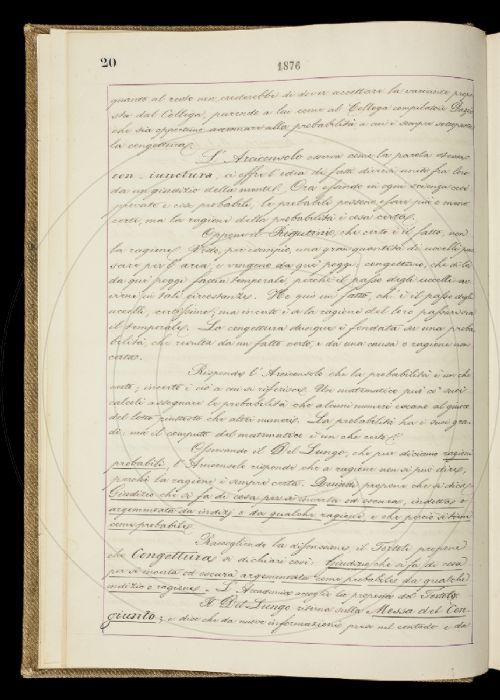 20
1876
quanto al resto non crederebbe di dover accettare la variante propo-
sta dal Collega, parendo a lui come al Collega compilatore
che sia opportuno accennare alla probabilità a cui è sempre
la congettura.
L'Arciconsolo osserva come la parola stessa
con-iunctura, ci offre l'idea di fatti diversi uniti fra loro
da un giudizio della mente. Ora essendo in ogni scienza cose
provate e cose probabili, le probabili possono essere più o meno
certe, ma la ragione della probabilità è cosa certa.
Oppone il Rigutini, che certo è il fatto, non
la ragione. Vedo, per esempio, una gran quantità di uccelli pas-
sare per l'aria, e vengono da quei poggi: congetturo, che di là
da quei poggi faccia temporale, perchè il passo degli uccelli av-
viene in tali circostanze. Ho qui un fatto, ch'è il passo degli
uccelli, certissimo, ma incerta è a la ragione del loro passare
il temporale. La congettura dunque è fondata su una proba-
bilità, che risulta da un fatto certo, e da una causa o ragione non
certa.
Risponde l'Arciconsolo che la probabilità è un che
certo; incerto è ciò a cui si riferisce. Un matematico può co' suoi
calcoli assegnare le probabilità che alcuni numeri escano al giuoco
del lotto piuttosto che altri numeri. La probabilità ha i suoi gra-
di, ma il computo del matematico è un che certo.
Osservando il Del Lungo, che pur diciamo ragioni
probabili, l'Arciconsolo risponde che a ragione non si può dire,
perchè la ragione è sempre certa. propone che si dica:
Giudizio che si fa di cosa per sè incerta od oscura,
argomentata da indizj o da qualche ragione, e che perciò si tiene
come probabile.
Raccogliendo la discussione il Tortoli propone
che Congettura si dichiari così: Giudizio che si fa di cosa
per sè incerta od oscura argomentata come probabile da qualche
indizio o ragione. L'Accademia accoglie la proposta del Tortoli.
Il Del Lungo ritorna sulla Messa del Con-
giunto; e dice che da nuove informazioni prese nel contado e da